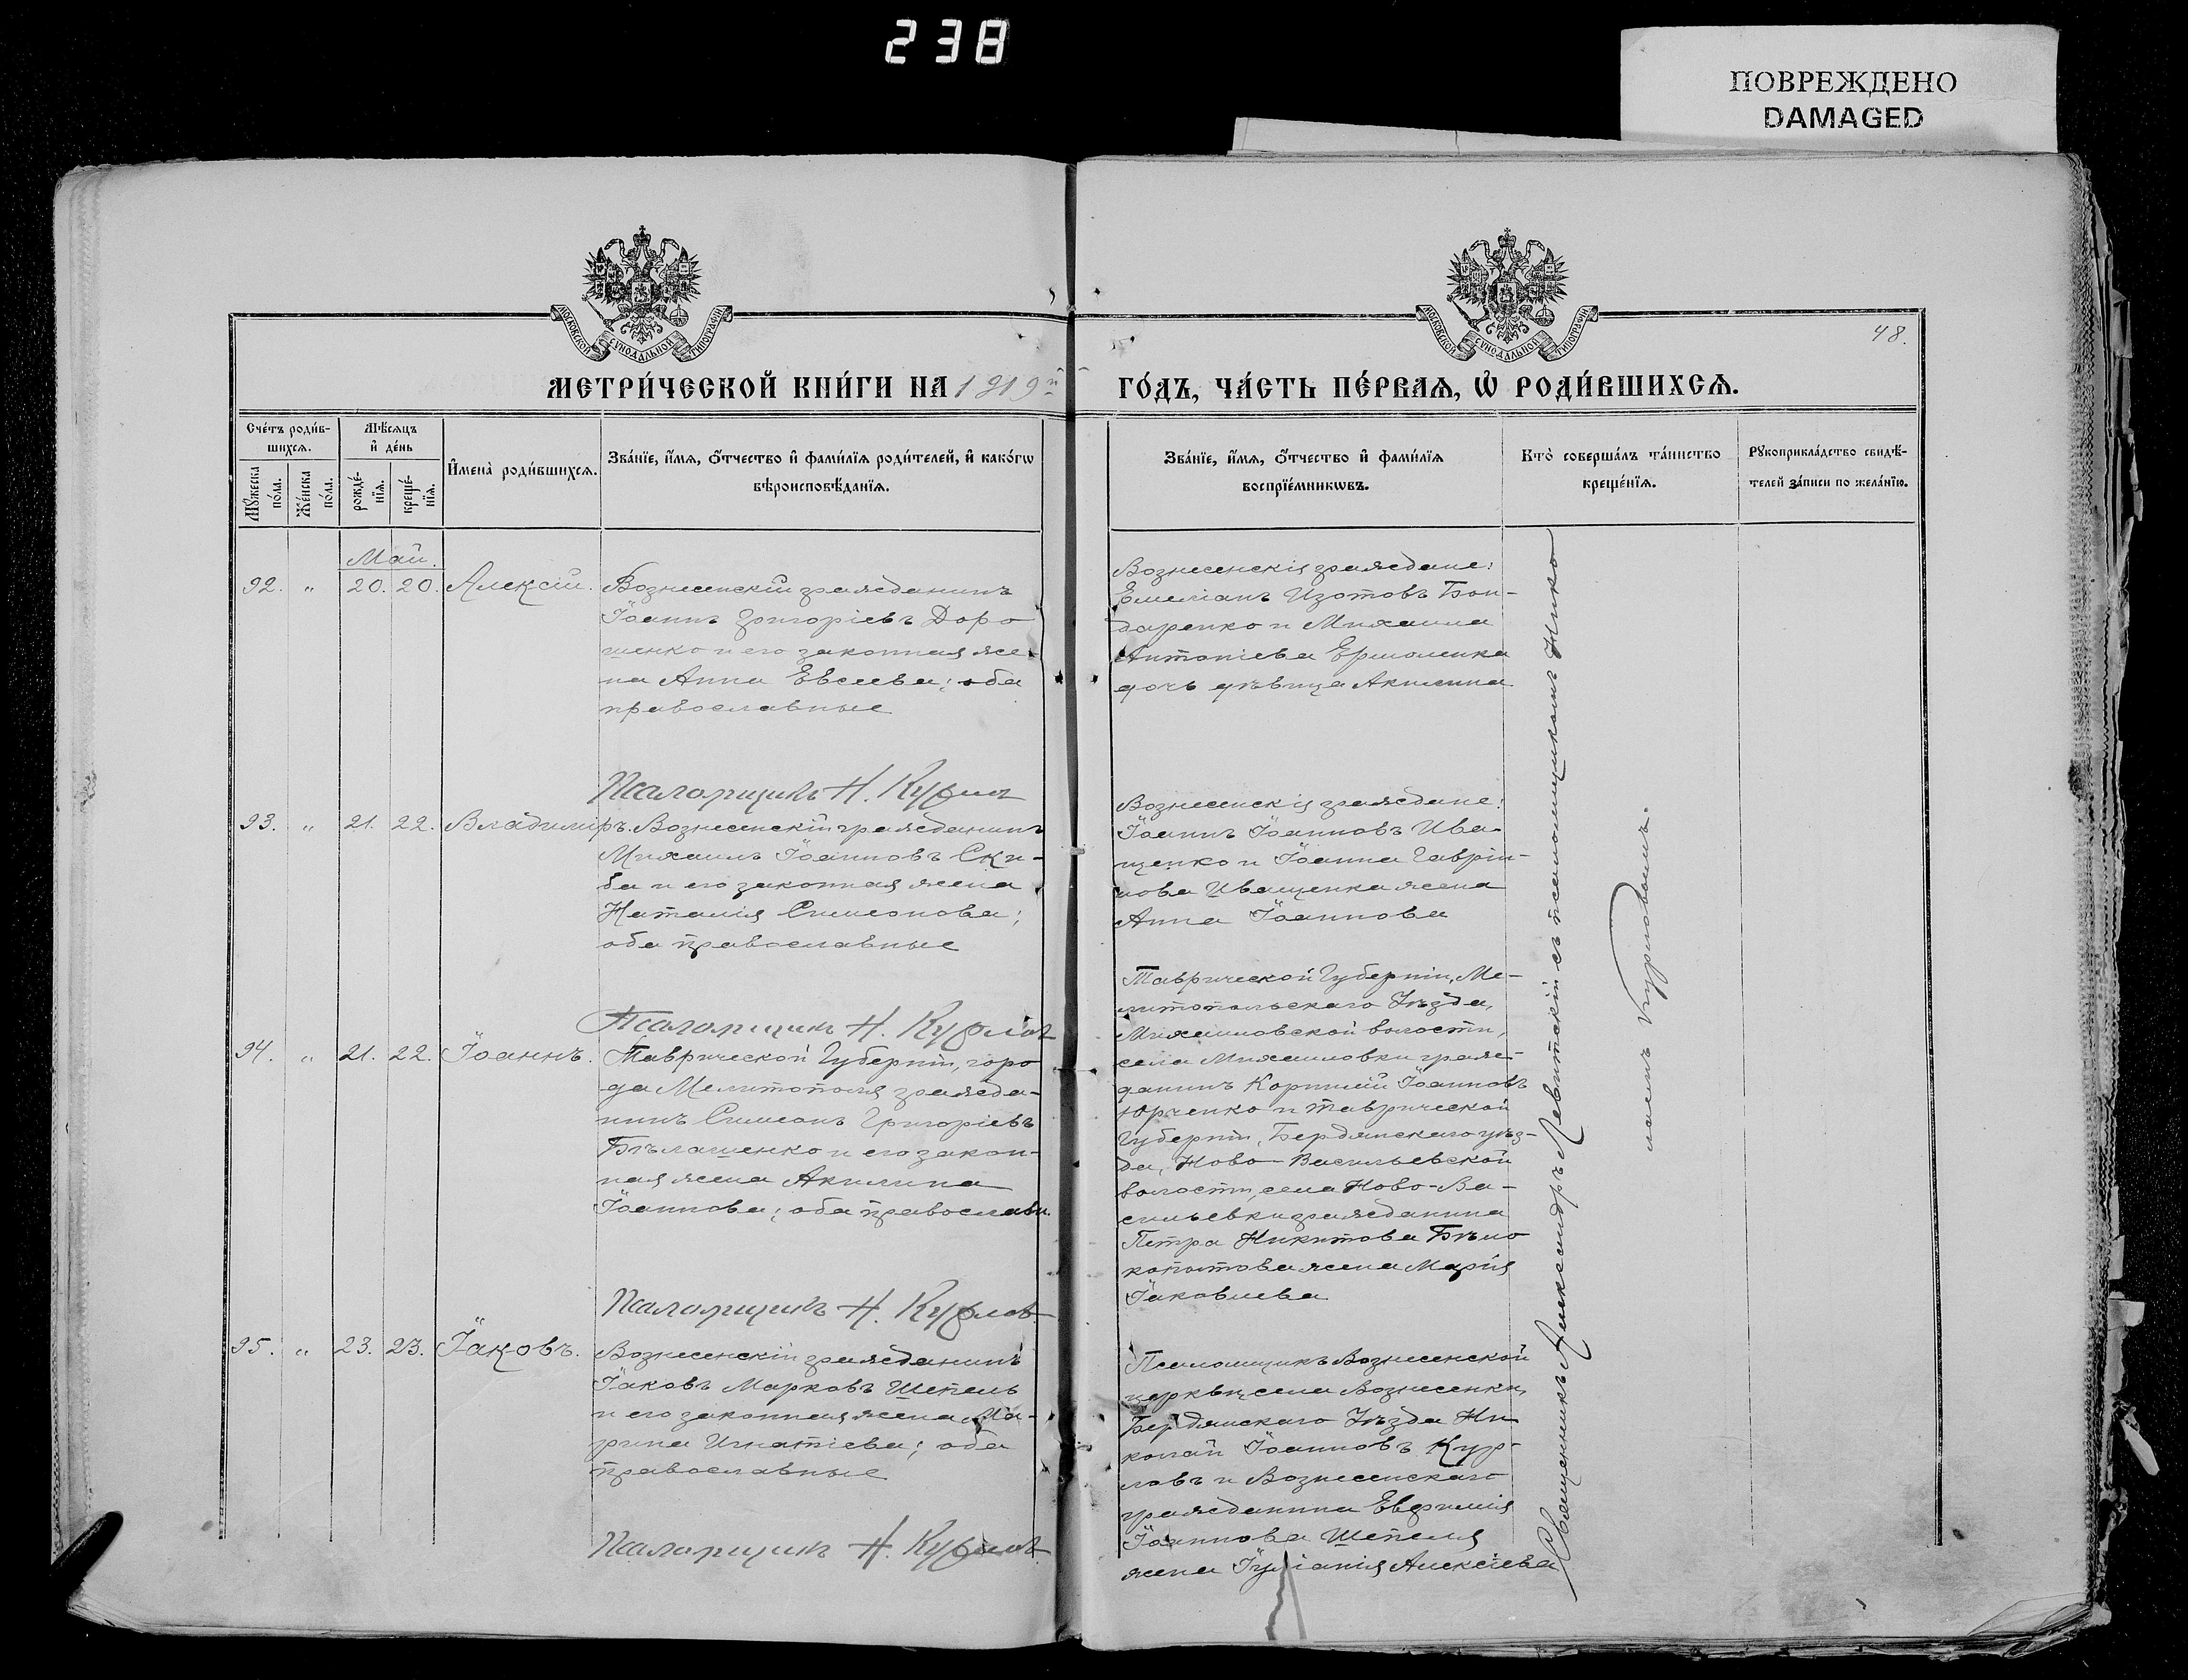 238
ПОВРЕЖДЕНО
DAMAGED
МОСКОВСКОЙ СѴНОДАЛЬНОЙ ТИПОГРАФІИ
МОСКОВСКОЙ СѴНОДАЛЬНОЙ ТИПОГРАФІИ
48.
МЕТРИ́ЧЕСКОЙ КНИ́ГИ НА 1919й
ГО́ДЪ, ЧА́СТЬ ПЕ́РВАѦ, Ѡ҆ РОДИ́ВШИХСѦ.
Сче́тъ роди́в-
шихсѧ.
Мꙋ́жеска по́ла.
Же́нска по́ла.
Мѣ́сѧцъ
и҆ де́нь
рожде́-
нїѧ.
креще́-
нїѧ.
И҆мена̀ роди́вшихсѧ.
Зва́нїе, и҆́мѧ, ѻ҆́тчество и҆ фами́лїѧ роди́телей, и҆ како́гѡ
вѣроисповѣ́данїѧ.
Зва́нїе, и҆́мѧ, ѻ҆́тчество и҆ фами́лїѧ
воспрїе́мникѡвъ.
Кто̀ соверша́лъ та́инство
креще́нїѧ.
Рꙋкоприкла́дство свидѣ́-
телей за́писи по жела́нїю.
Май.
92. " 20. 20. Алексій. Вознесенскій гражданинъ
Іоаннъ Григоріевъ Доро
шенко и его законная же-
на Анна Евсеева; оба
православные
Псаломщикъ Н. Курловъ
Вознесенскія граждане:
Емеліанъ Изотовъ Бон-
даренко и Михаила
Антоніева Ермоленка
дочь дѣвица Акилина.
93. " 21. 22. Владиміръ. Вознесенскій гражданинъ
Михаилъ Іоанновъ Ски-
ба и его законная жена
Наталія Симеонова;
оба православные
Псаломщикъ Н. Курловъ
Вознесенскія граждане:
Іоаннъ Іоанновъ Ива-
щенко и Іоанна Гаврі-
лова Иващенка жена
Анна Іоаннова
94. " 21. 22. Іоаннъ. Таврической Губерніи, горо
да Мелитополя гражда-
нинъ Симеонъ Григоріевъ
Бѣлашенко и его закон-
ная жена Акилина
Іоаннова; оба православн.
Псаломщикъ Н. Курловъ
Таврической Губерніи, Ме-
литопольскаго Уѣзда,
Михайловской волости,
села Михайловки граж-
данинъ Корнилій Іоанновъ
Юрченко и Таврической
Губерніи, Бердянскаго уѣз-
да, Ново-Васильевской
волости, села Ново-Ва-
сильевки гражданина
Петра Никитова Бѣло
копытова жена Марія
Іаковлева
95. " 23. 23. Іаковъ. Вознесенскій гражданинъ
Іаковъ Марковъ Шепель
и его законная жена Ма-
рина Игнатіева; оба
православные
Псаломщикъ Н. Курловъ
Псаломщикъ Вознесенской
церкви села Вознесенки,
Бердянскаго Уѣзда Ни
колай Іоанновъ Кур-
ловъ и Вознесенскаго
гражданина Евфимія
Іоаннова Шепеля
жена Іуліанія Алексіева
Священникъ Александръ Левитскій съ псаломщикомъ Нико
лаемъ Курловымъ.